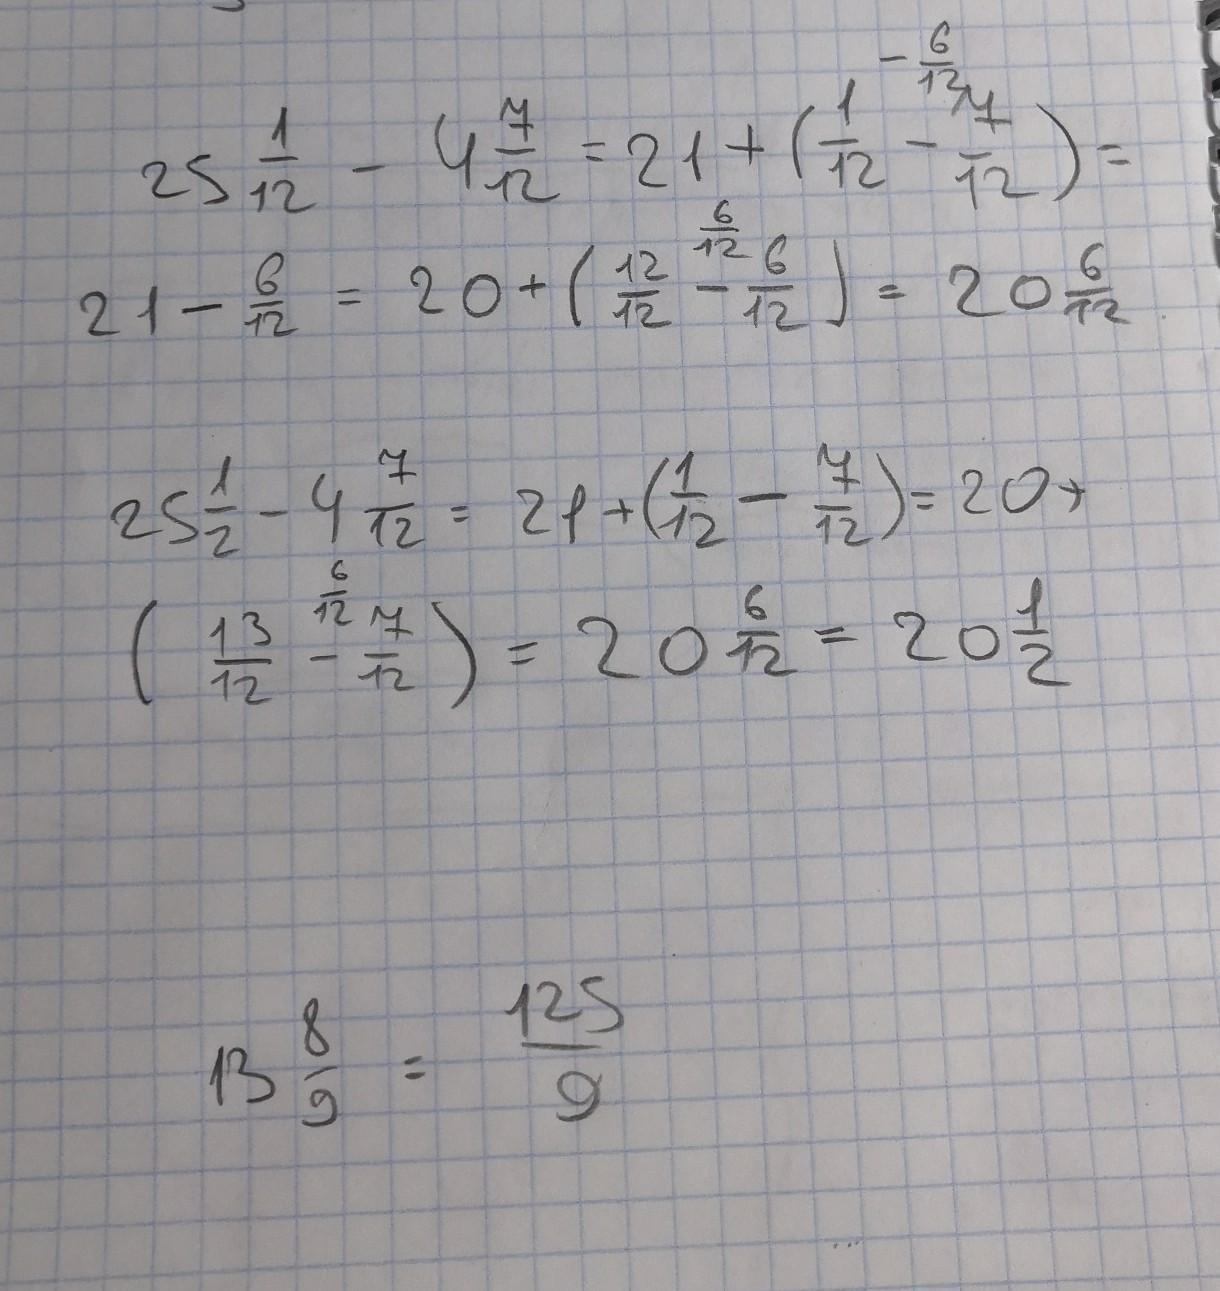 25 1/12 - 4 7/12 = 21 + (1/12 - 7/12) = - 6/12
21 - 6/12 = 20 + (12/12 - 6/12) = 20 6/12 6/12
25 1/2 - 4 7/12 = 21 + (1/12 - 7/12) = 20 +
(13/12 - 7/12) = 20 6/12 = 20 1/2 6/12
13 8/9 = 125/9